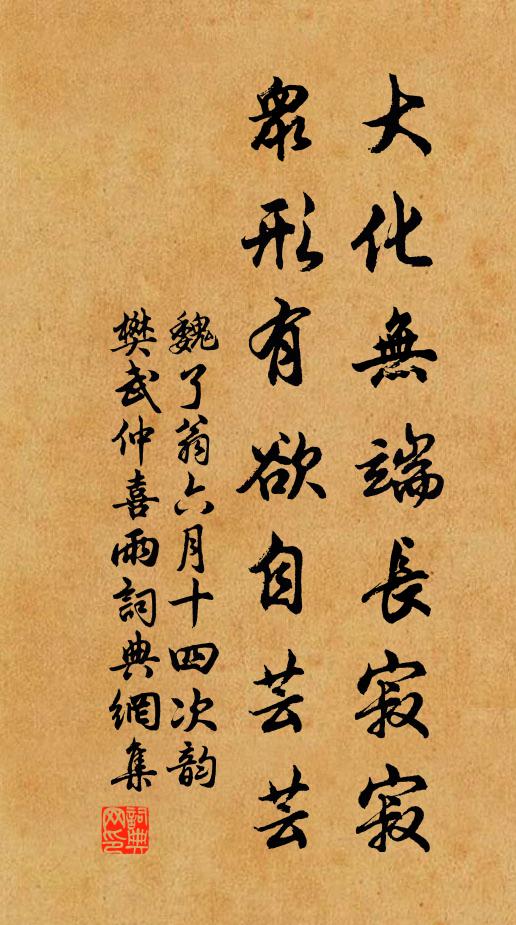 大化無端長寂寂
眾形有欲自芸芸
魏了翁六月十四次韵
樊武仲喜雨詞典網集
詞典网印